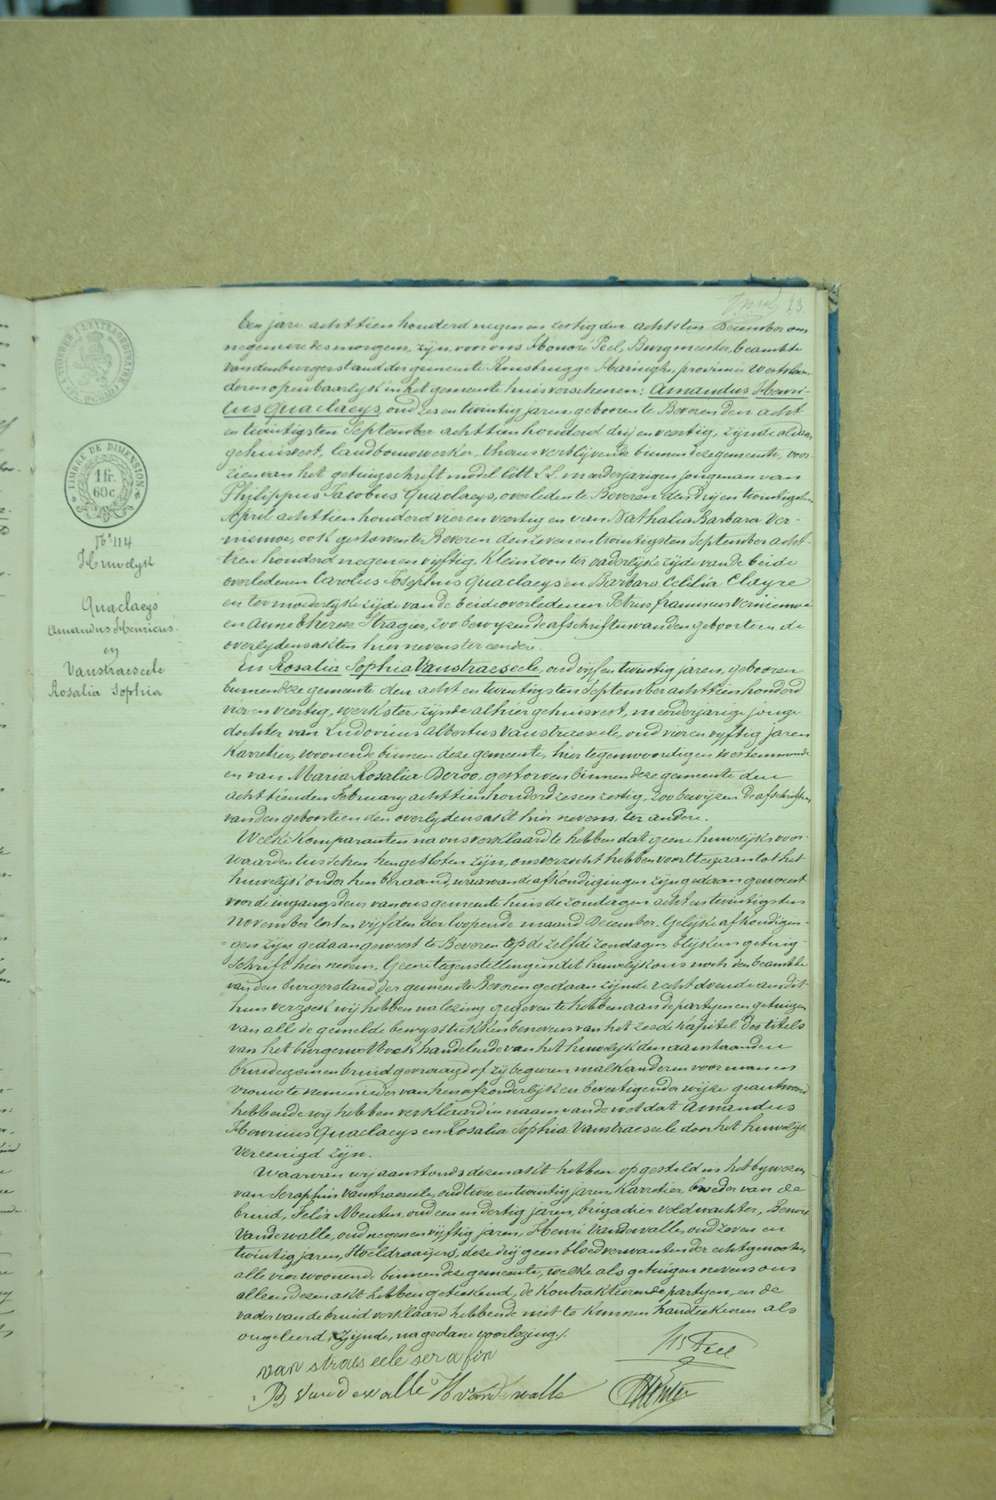 23
TIMBRE DE DIMENSION
1 fr.
60 c.
N° 114
Huwelyk
Quaclaeys
Amandus Henricus
en
Vanstraeseele
Rosalia Sophia
Een jare achttien honderd negen en zestig den achtsten December om
negen ure des morgens, zijn voor ons Honoré Peel, Burgmeester, beambte
van den burgerstand der gemeente Rousbrugge Haringhe, provincie Westvlaan-
deren openbaarlyk in het gemeentehuis verschenen: Amandus Henri-
cus Quaclaeys, oud zes en twintig jaren, gebooren te Beveren den acht
en twintigsten September achttien honderd drij en veertig, zijnde aldaar
gehuisvest, landbouwwerker, thans verblijvende binnen deze gemeente, voor-
zien van het getuigschrift model litt. LL. meerderjarigen jongman van
Philippus Jacobus Quaclaeys, overleden te Beveren den drij en twintigsten
April achttien honderd vier en veertig en van Nathalia Barbara Ver-
mieuwe, ook gestorven te Beveren den zeven en twintigsten September acht-
tien honderd negen en vijftig. Kleinzoon ter vaderlyke zijde van de beide
overledenen Carolus Josephus Quaclaeys en Barbara Celilia Clayre
en ter moederlyke zijde van de beide overledenen Petrus franciscus Vernieuwe
en Anne Therese Strager, zoo bewyzen de afschriften van den geboorte en de
overlydensakten hier nevens ter eenden.
En Rosalia Sophia Vanstraeseele, oud vijf en twintig jaren, gebooren
binnen deze gemeente den acht en twintigsten September achttien honderd
vier en veertig, werkster, zijnde alhier gehuisvest, meerderjarige jonge
dochter van Ludovicus Albertus Vanstraeseele, oud vier en vyftig jaren
Karretier, woonende binnen deze gemeente, hier tegenwoordig en toestemmende
en van Maria Rosalia Deroo, gestorven binnen deze gemeente den
achttienden February achttien honderd zes en zestig, zoo bewijzen de afschriften
van den geboorte en den overlydensakt hier nevens ter andere.
Welke Komparanten na ons verklaard te hebben dat geene huwelijks voor-
waarden tusschen hen gesloten zijn, ons verzocht hebben voort te gaan tot het
huwelijk onder hen beraamd, waarvan de afkondigingen zijn gedaan geweest
voor de ingangsdeur van ons gemeente huis de zondagen acht en twintigsten
November lest en vijfden der loopende maand December. Gelijke afkondigin-
gen zijn gedaan geweest te Beveren op de zelfde zondagen blijkens getuig-
schrift hier nevens. Geene tegenstelling in dit huwelijk ons noch den beambte
van den burgerstand der gemeente Beveren gedaan zijnde, recht doende aan dit
hun verzoek wij hebben na lezing gegeven te hebben aan de partyen en getuigen
van alle de gemelde bewysstukken benevens van het zesde Kapitel des titels
van het burgerwetboek handelende van het huwelijk den aanstaanden
bruidegom en bruid gevraagd of zy begeren malkanderen voor man en
vrouw te nemen ieder van hen afzonderlijk en bevestigender wijze geantwoord
hebbende wij hebben verklaard in naam van de wet dat Amandus
Henricus Quaclaeys en Rosalia Sophia Vanstraeseele door het huwelijk
vereenigd zijn.
Waarvan wij aanstonds dezen akt hebben opgesteld in het bywezen
van Seraphin Vanstraeseele, oud twee en twintig jaren Karretier broeder van de
bruid, Felix Menten, oud een en dertig jaren, brigadier veldwachter,
Vandewalle, oud negen en vyftig jaren, Henri Vandewalle oud zeven en
twintig jaren, Stoeldraaijers, deze drij geen bloedverwanten der echtgenooten,
alle vier woonende binnen deze gemeente, welke als getuigen nevens ons
alleen dezen akt hebben geteekend, de kontrakteerende partyen, en de
vader van de bruid verklaard hebbende niet te kunnen handteekenen als
ongeleerd zijnde, na gedane voorlezing.
van straeseele serafin
Hs Peel
B Vandewalle H vandewalle